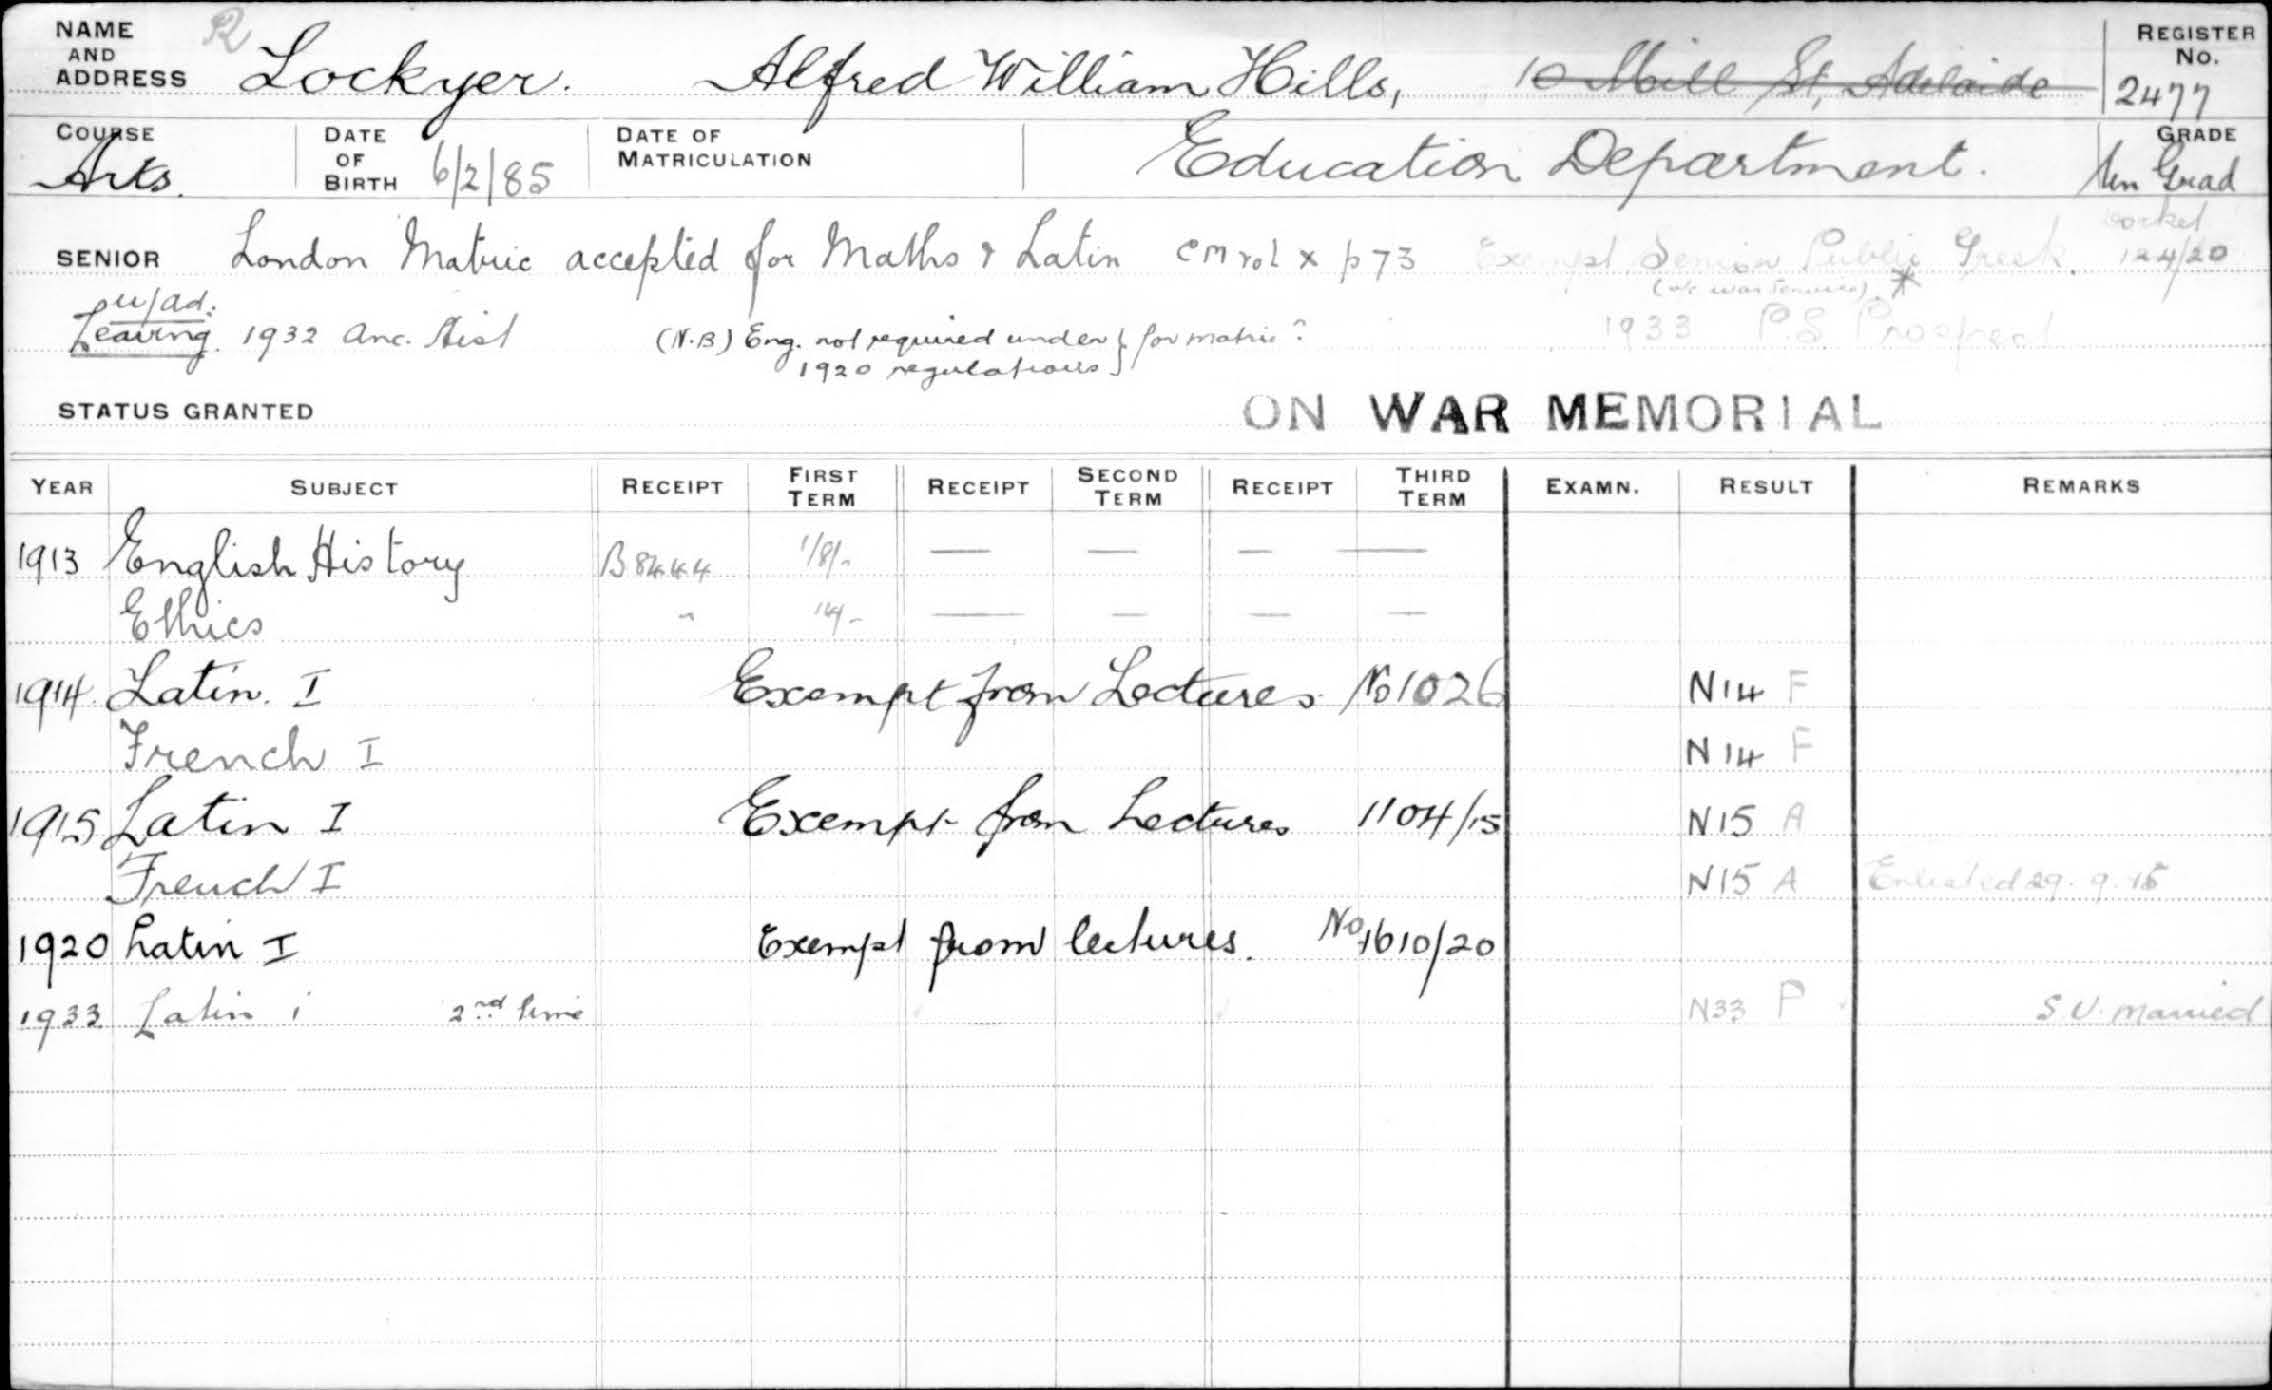 NAME AND ADDRESS R Lockyer. Alfred William Hills, 10 Mill St, Adelaide REGISTER No. 2477
COURSE Arts. DATE OF BIRTH 6/2/85 DATE OF MATRICULATION Education Department. GRADE Un Grad
SENIOR London Matric accepted for Maths & Latin x p 73 Exempt Senior Public Greek. docket 124/20
(a/c war service) *
Leaving 1932 Anc. Hist (N.B) Eng. not required under } for matric? 1933 P.S. Prospect
1920 regulations
STATUS GRANTED ON WAR MEMORIAL
YEAR SUBJECT RECEIPT FIRST TERM RECEIPT SECOND TERM RECEIPT THIRD TERM EXAMN. RESULT REMARKS
1913 English History B8444 1/8/- — — — —
Ethics " — — — —
1914. Latin. I Exempt from Lectures No 1026 N14 F
French I N14 F
1915 Latin I Exempt from Lectures 1104/15 N15 A
French I N15 A Enlisted 29.9.15
1920 Latin I Exempt from lectures. No 1610/20
1933 Latin i 2nd time N33 P S.U. married